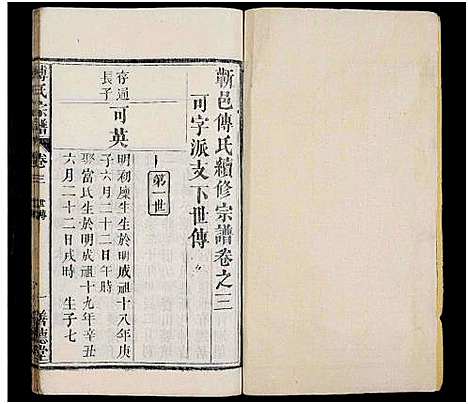 蘄邑傅氏續修宗譜卷之三
可字派支下世傳
第一世
存通
長子
可英
明利燥生生於明成祖十八年庚
子六月二十二日午時
娶富氏生於明成祖十九年辛丑
六月二十二日戌時 生子七
傅氏宗譜
卷三
世傳
一
善德堂